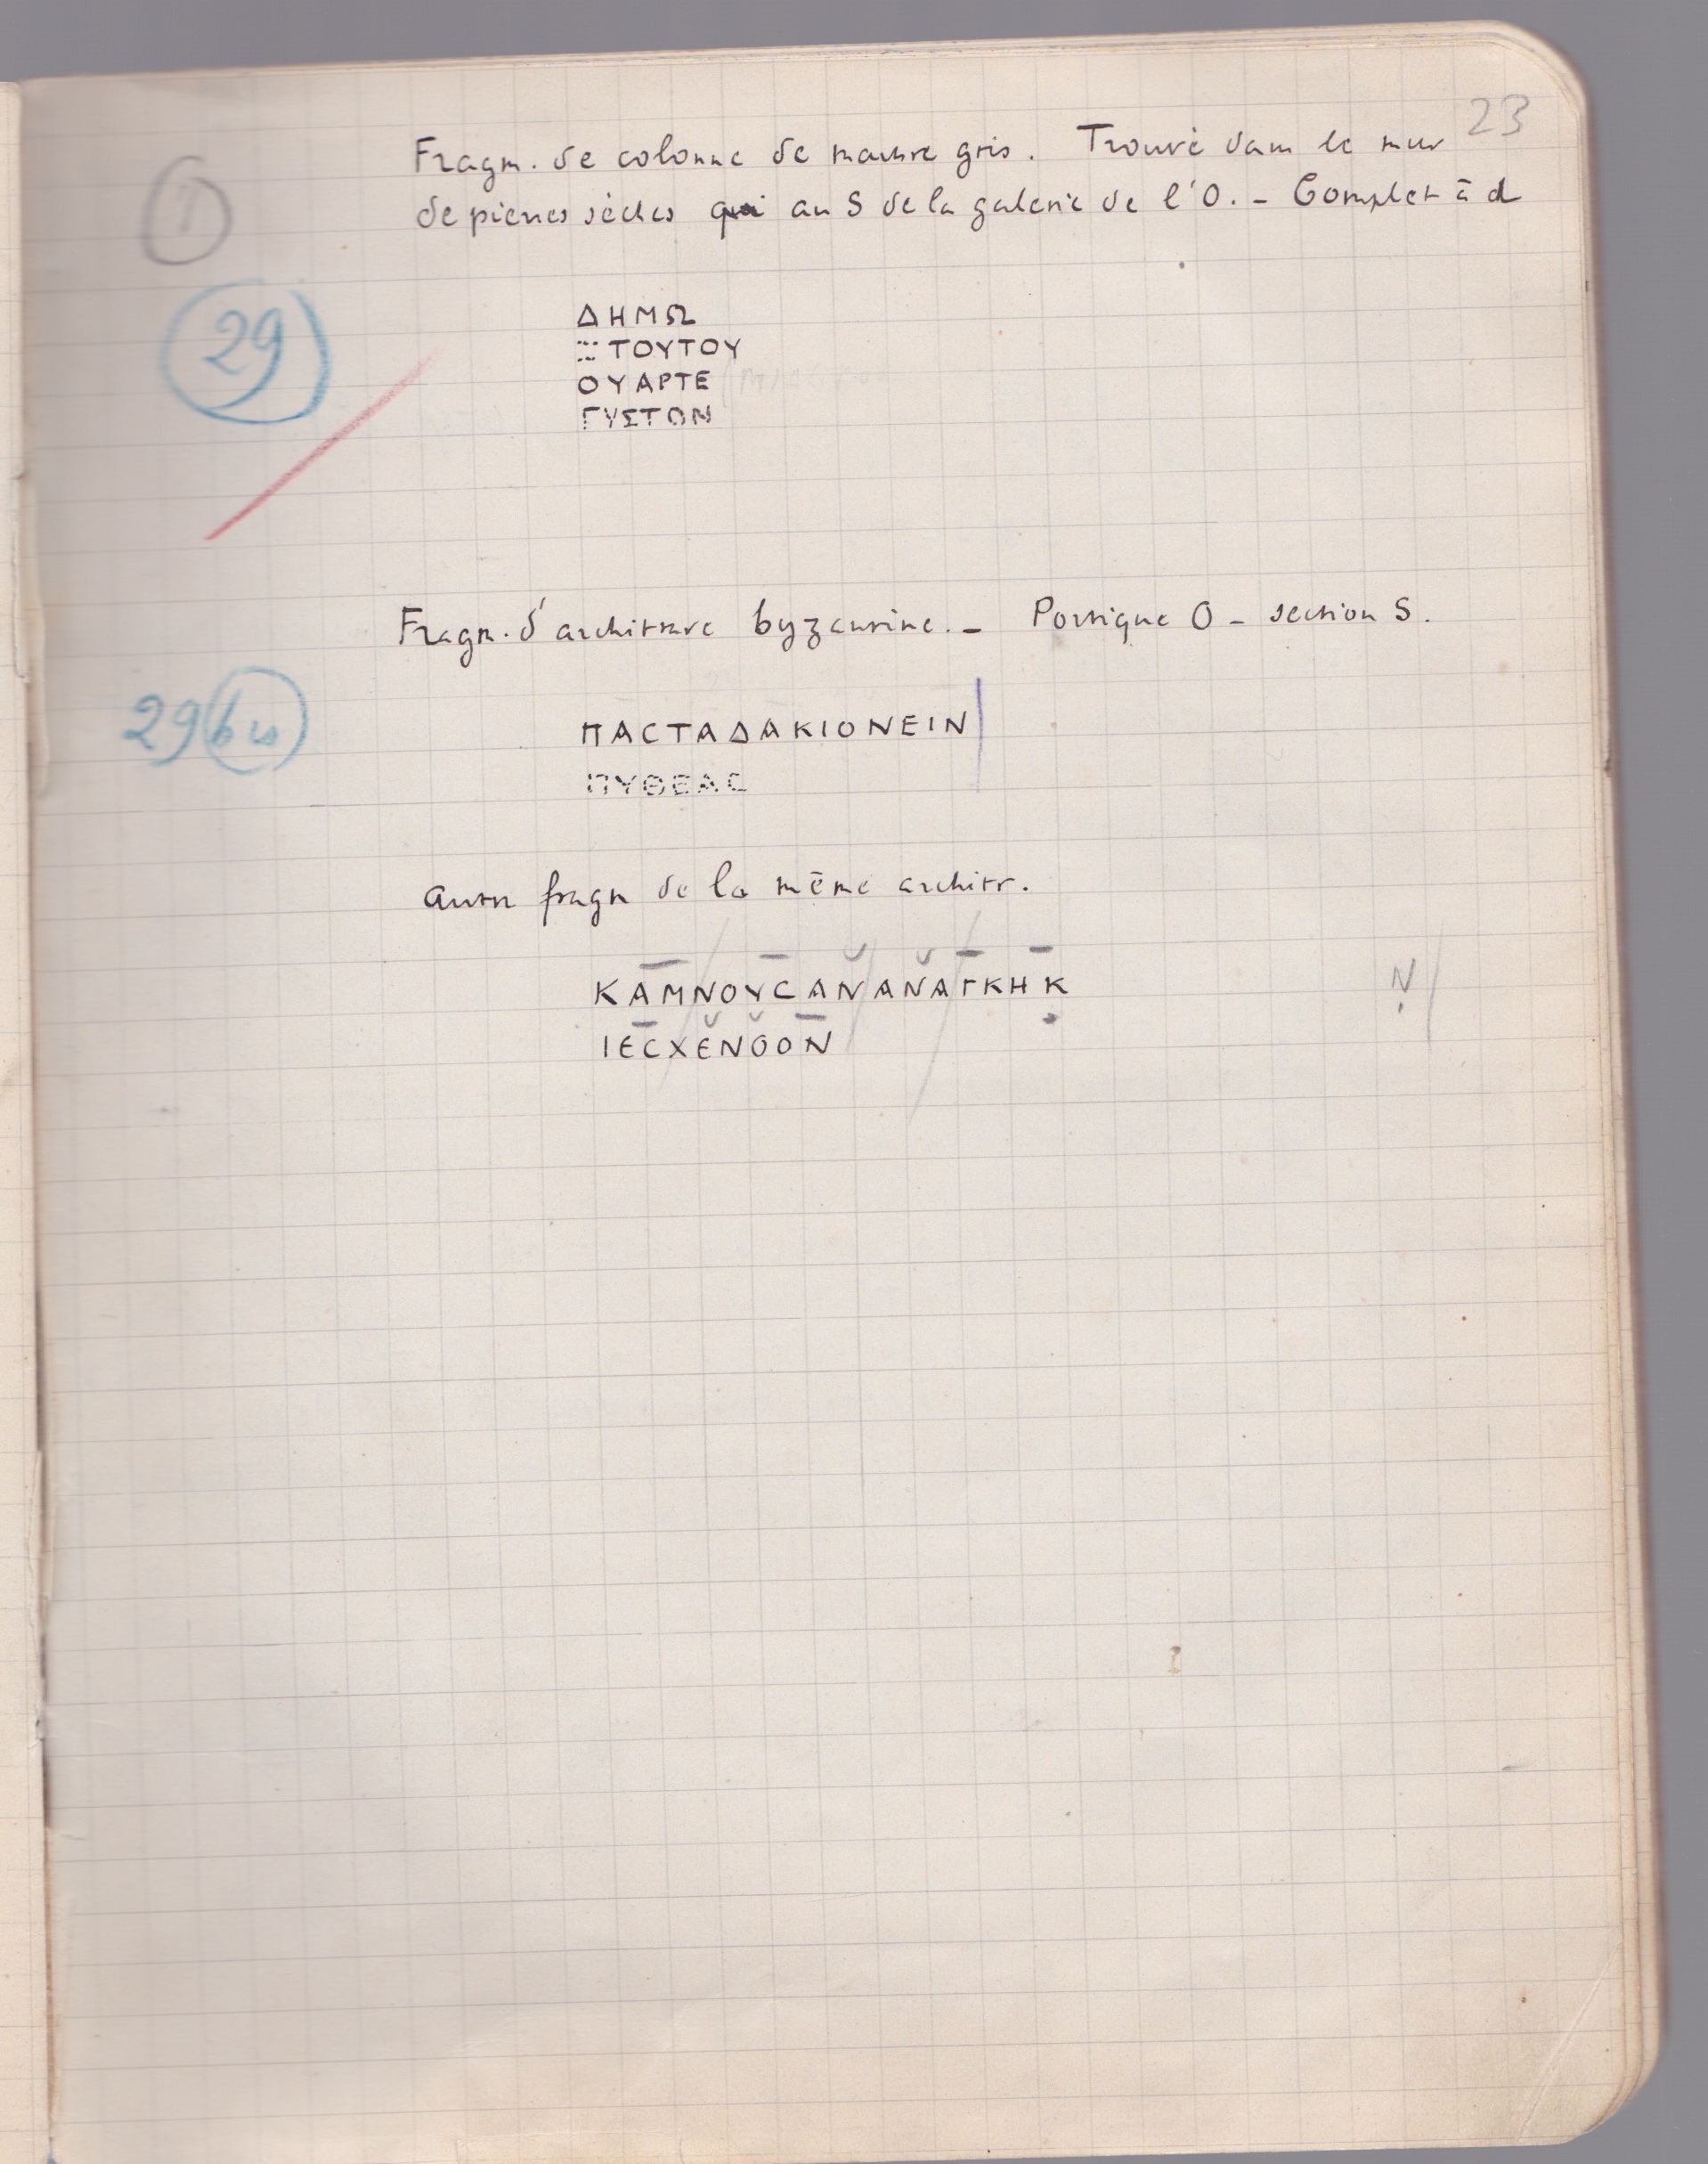 23
Fragm. de colonne de marbre gris. Trouvé dans le mur
de pierres sèches qui au S de la galerie de l'O. - Complet à d
1
29
ΔΗΜΩ
ΞΤΟΥΤΟΥ
ΟΥΑΡΤΕ
ΓΥΣΤΟΝ
Fragm. d'architrave byzantine. - Portique O - section S.
29 bis
ΠΑCΤΑΔΑΚΙΟΝΕΙΝ
ΠΥΘΕΑC
autre fragm de la même architr.
ΚΑΜΝΟΥCΑΝΑΝΑΓΚΗΚ
Ν
ΙΕCΧΕΝΟΟΝ